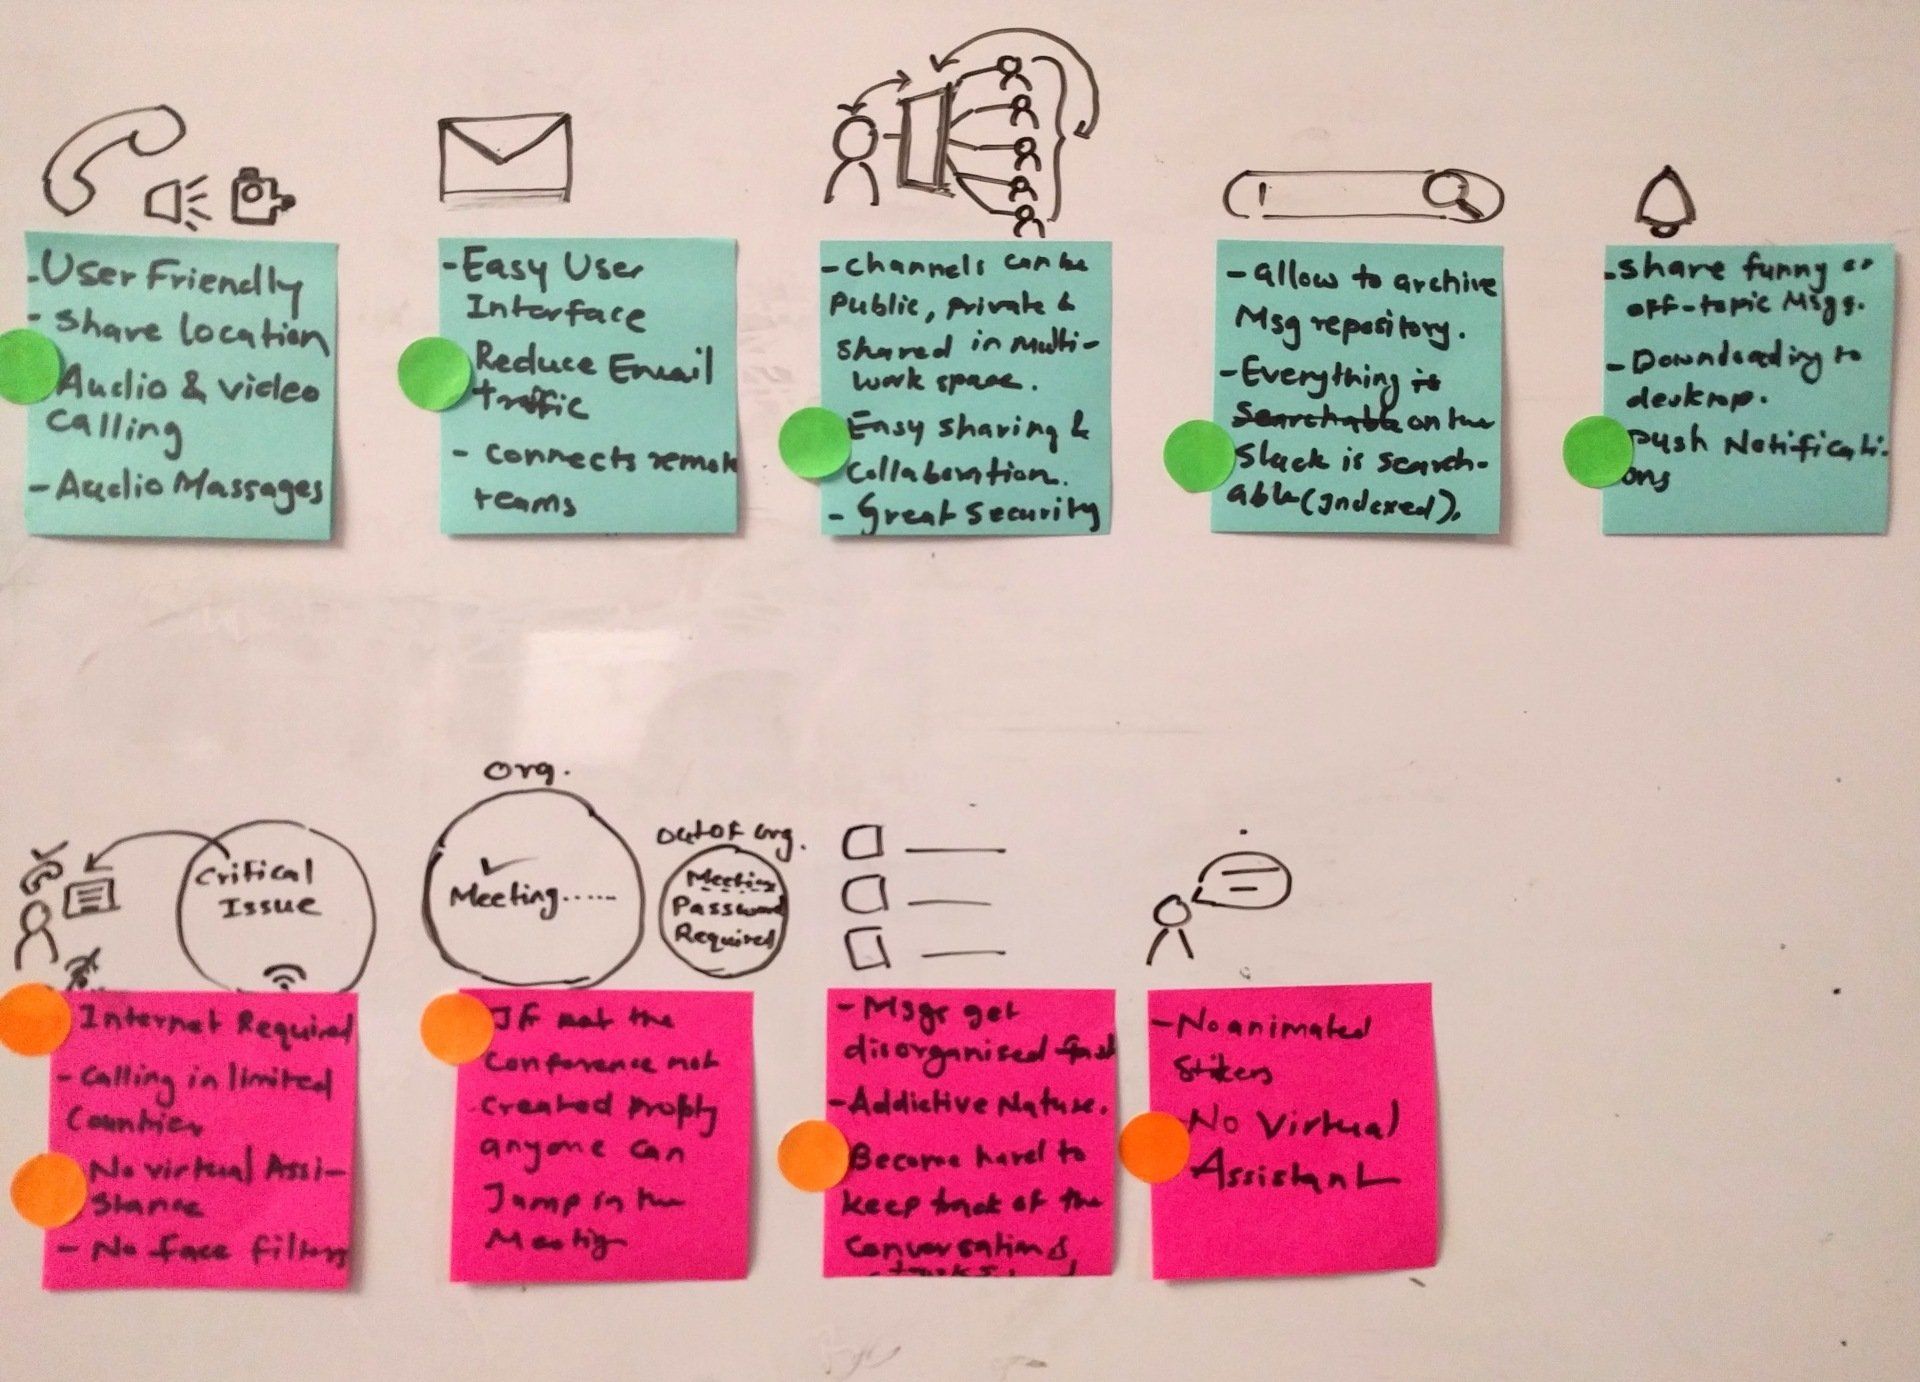 - User Friendly
- Share location
Audio & video
calling
- Audio Massages
- Easy User
Interface
Reduce Email
traffic
- connects remote
teams
- channels can be
public, private &
shared in multi-
work space.
Easy sharing &
collaboration.
- Great Security
- allow to archive
Msg repository.
- Everything is
Searchable on the
Slack is search-
able (indexed).
- share funny or
off-topic Msgs.
- Downloading to
desktop.
push Notificati-
ons
Critical
Issue
Org.
Meeting......
out of org.
Meeting
Password
Required
Internet Required
- Calling in limited
Countries
No virtual Assi-
stance
- No face filters
If not the
conference not
created proply
anyone can
Jump in the
Meeting
- Msgs get
disorganised fast
- Addictive Nature.
Become hard to
keep track of the
conversations,
- No animated
Stikers
- No Virtual
Assistant